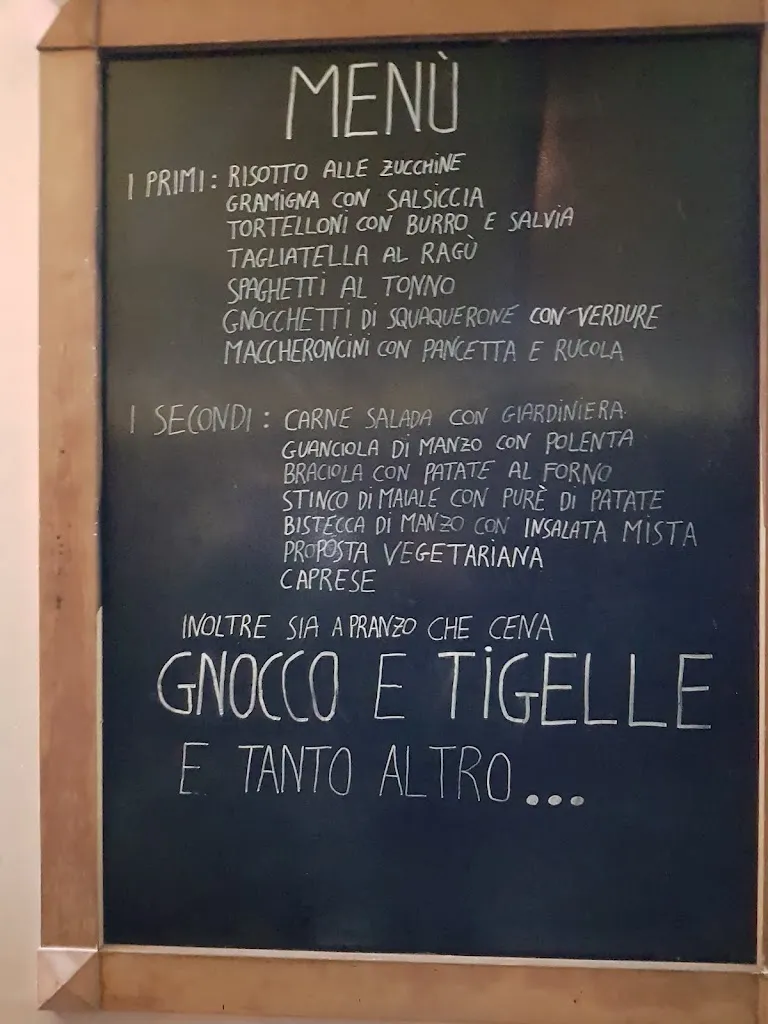 MENÙ
I PRIMI: RISOTTO ALLE ZUCCHINE
GRAMIGNA CON SALSICCIA
TORTELLONI CON BURRO E SALVIA
TAGLIATELLA AL RAGÙ
SPAGHETTI AL TONNO
GNOCCHETTI DI SQUAQUERONE CON VERDURE
MACCHERONCINI CON PANCETTA E RUCOLA
I SECONDI: CARNE SALADA CON GIARDINIERA
GUANCIOLA DI MANZO CON POLENTA
BRACIOLA CON PATATE AL FORNO
STINCO DI MAIALE CON PURÈ DI PATATE
BISTECCA DI MANZO CON INSALATA MISTA
PROPOSTA VEGETARIANA
CAPRESE
INOLTRE SIA A PRANZO CHE CENA
GNOCCO E TIGELLE
E TANTO ALTRO...